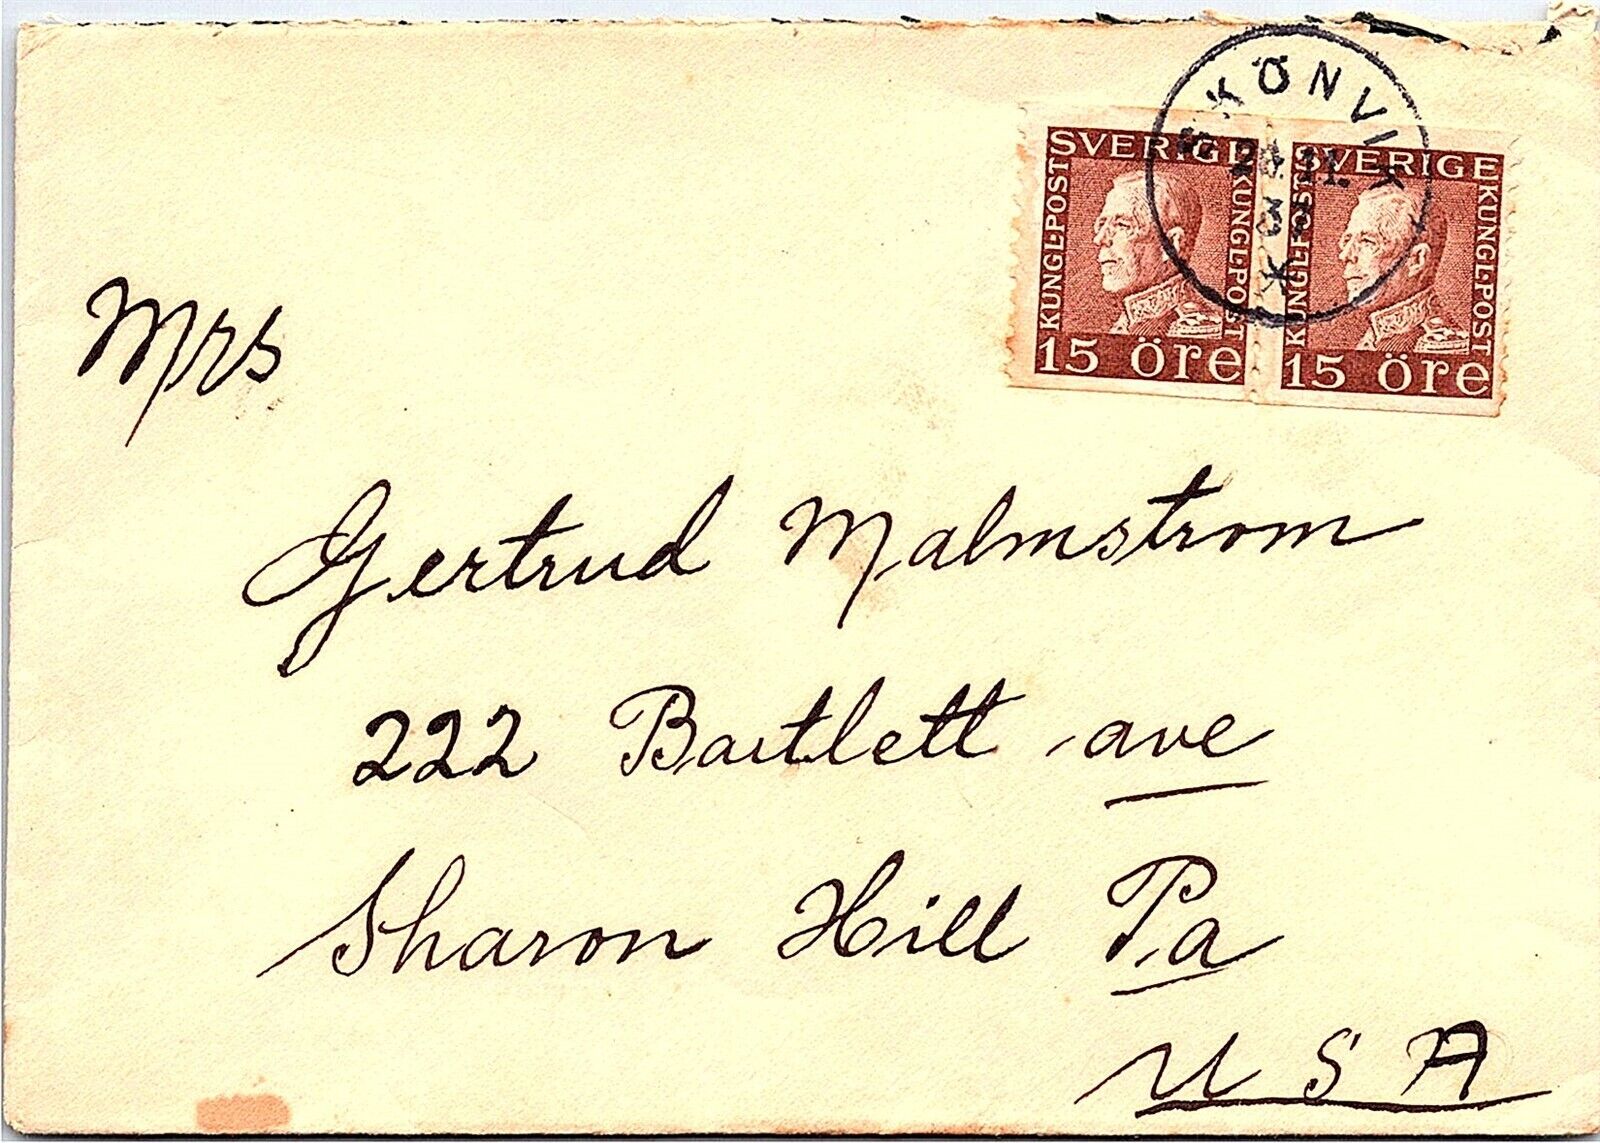 SKÖNVIK
SVERIGE
KUNGL-POST
KUNGL-POST
15 ÖRE
SVERIGE
KUNGL-POST
KUNGL-POST
15 ÖRE
Mrs
Gertrud Malmstrom
222 Bartlett ave
Sharon Hill Pa
U S A